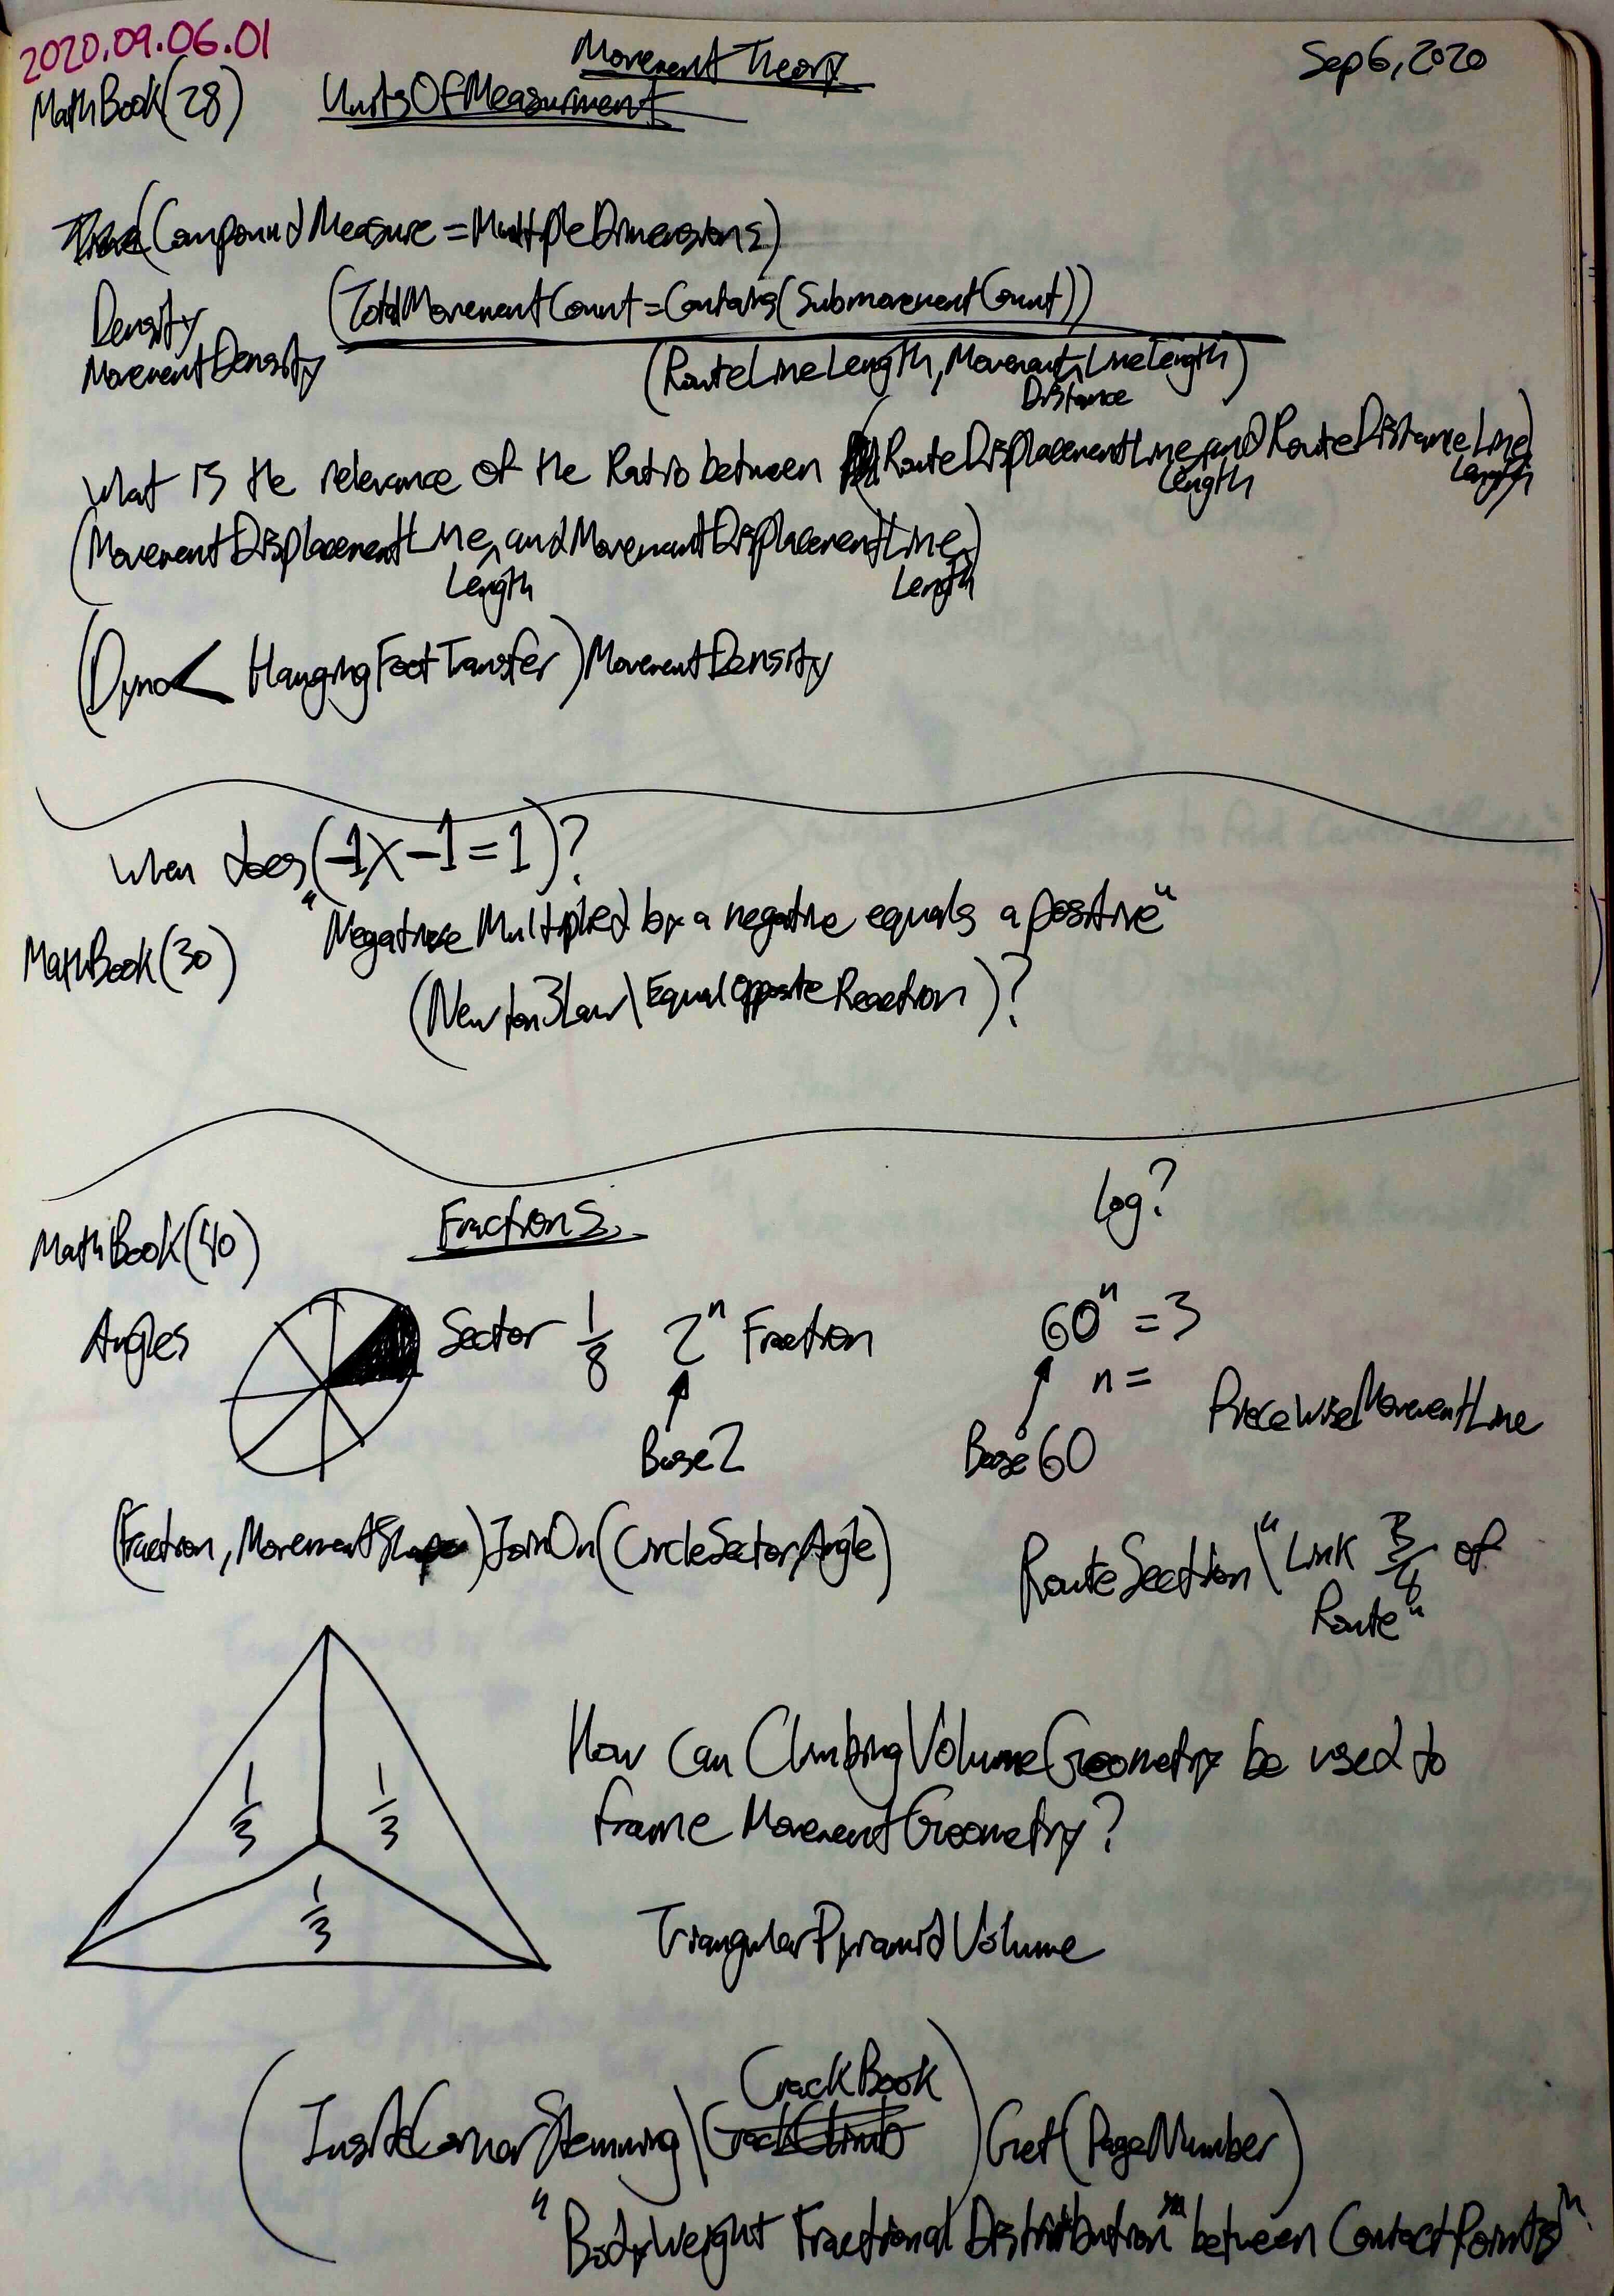 2020.09.06.01
Movement Theory
Sep 6, 2020
MathBook(28)
UnitsOfMeasurment
(CompoundMeasure = MultipleDimensions)
Density
MovementDensity
(TotalMovementCount = Contains(SubmovementCount))
(RouteLineLength, MovementLineLength)
Distance
What is the relevance of the Ratio between (RouteDisplacementLine and RouteDistanceLine
Length
Length
(MovementDisplacementLine, and MovementDisplacementLine)
Length
Length
(Dyno < HangingFootTransfer) MovementDensity
When does (-1 x -1 = 1)?
"Negative Multiplied by a negative equals a positive"
MathBook(30)
(Newton3Law\EqualOppositeReaction)?
MathBook(40)
Fractions
Log?
Angles
Sector 1/8
2ⁿ Fraction
60ⁿ = 3
n =
Base2
Base60
PieceWiseMovementLine
(Fraction, MovementShape) JoinOn(CircleSector, Angle)
RouteSection\"Link of
Route"
1/3
1/3
1/3
How can ClimbingVolumeGeometry be used to
frame MovementGeometry?
TriangularPyramidVolume
CrackBook
(InsideCornerStemming\CrackClimb) Get(PageNumber)
"BodyWeight Fractional Distribution" between ContactPoints"